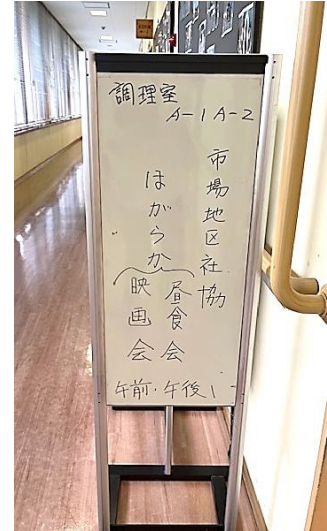 調理室
A-1 A-2
市場地区社協
ほがらか
昼食会
映画会
午前・午後1